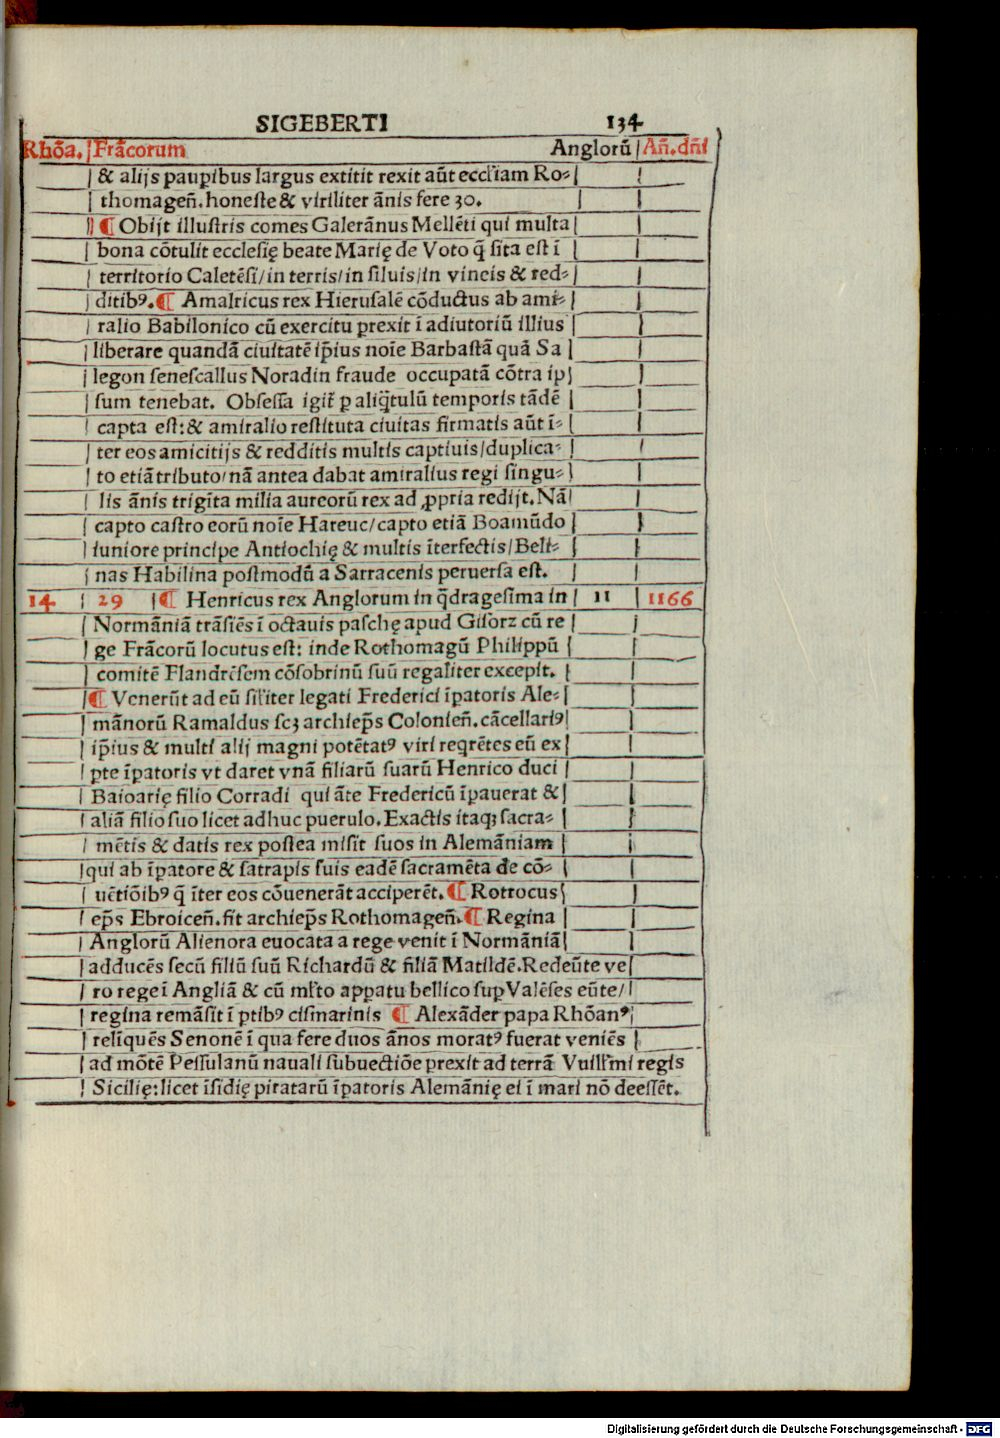 SIGEBERTI 134
Rhōa. Frācorum Anglorū An̄. dn̄i
& alijs pauꝑibus largus extitit rexit aūt eccl̄iam Ro⸗
thomagen̄. honeſte & viriliter ānis fere 30.
¶ Obijt illuſtris comes Galerānus Mellēti qui multa
bona cōtulit ecclesię beate Marię de Voto q̄ ſita eſt ī
territorio Caletēſi/in terris/in ſiluis/in vineis & red⸗
ditibꝰ. ¶ Amalricus rex Hieruſalē cōductus ab ami⸗
ralio Babilonico cū exercitu prexit ī adiutoriū illius
liberare quandā ciuitatē ip̄ius noīe Barbaſtā quā Sa
legon ſeneſcallus Noradin fraude occupatā cōtra ip
ſum tenebat. Obſeſſa igit̄ ꝑ aliq̄tulū temporis tādē
capta eſt: & amiralio reſtituta ciuitas firmatis aūt ī⸗
ter eos amicitijs & redditis multis captiuis/duplica⸗
to etiā tributo/nā antea dabat amiralius regi ſingu⸗
lis ānis trigīta milia aureorū rex ad ꝓpria redijt. Nā
capto caſtro eorū noīe Hareuc/capto etiā Boamūdo
iuniore principe Antiochię & multis īterfectis/Beli⸗
nas Habilina poſtmodū a Sarracenis peruerſa eſt.
14 29 ¶ Henricus rex Anglorum in q̄drageſima in 11 1166
Normāniā trāſiēs ī octauis paſchę apud Giſorz cū re
ge Frācorū locutus est: inde Rothomagū Philippū
comitē Flandrēſem cōſobrinū ſuū regaliter excepit.
¶ Venerūt ad eū ſil̄iter legati Frederici īꝑatoris Ale⸗
mānorū Ramaldus ſcꝫ archiep̄s Colonien̄. cācellariꝰ
ip̄ius & multi alij magni potētatꝰ viri req̄rētes eū ex
pte īꝑatoris vt daret vnā filiarū ſuarū Henrico duci
Baioarię filio Corradi qui āte Fredericū īꝑauerat &
aliā filio ſuo licet adhuc puerulo. Exactis itaqꝫ ſacra⸗
mētis & datis rex poſtea miſit ſuos in Alemāniam
qui ab īꝑatore & ſatrapis ſuis eadē ſacramēta de cō⸗
uētiōibꝰ q̄ īter eos cōuenerāt acciperēt. ¶ Rotrocus
ep̄s Ebroicen̄. fit archiep̄s Rothomagen̄. ¶ Regina
Anglorū Alienora euocata a rege venit ī Normāniā
adducēs ſecū filiū ſuū Richardū & filiā Matildē. Redeūte ve
ro rege ī Angliā & cū ml̄to appatu bellico ſuꝑ Valēſes eūte/
regina remāſit ī ꝑtibꝰ ciſmarinis ¶ Alexāder papa Rhōanꝰ
relīquēs Senonē ī qua fere duos ānos moratꝰ fuerat veniēs
ad mōtē Peſſulanū nauali ſubuectiōe prexit ad terrā Vuill̄mi regis
Sicilię: licet īſidię piratarū īꝑatoris Alemānię ei ī mari nō deeſſēt.
Digitalisierung gefördert durch die Deutsche Forschungsgemeinschaft - DFG